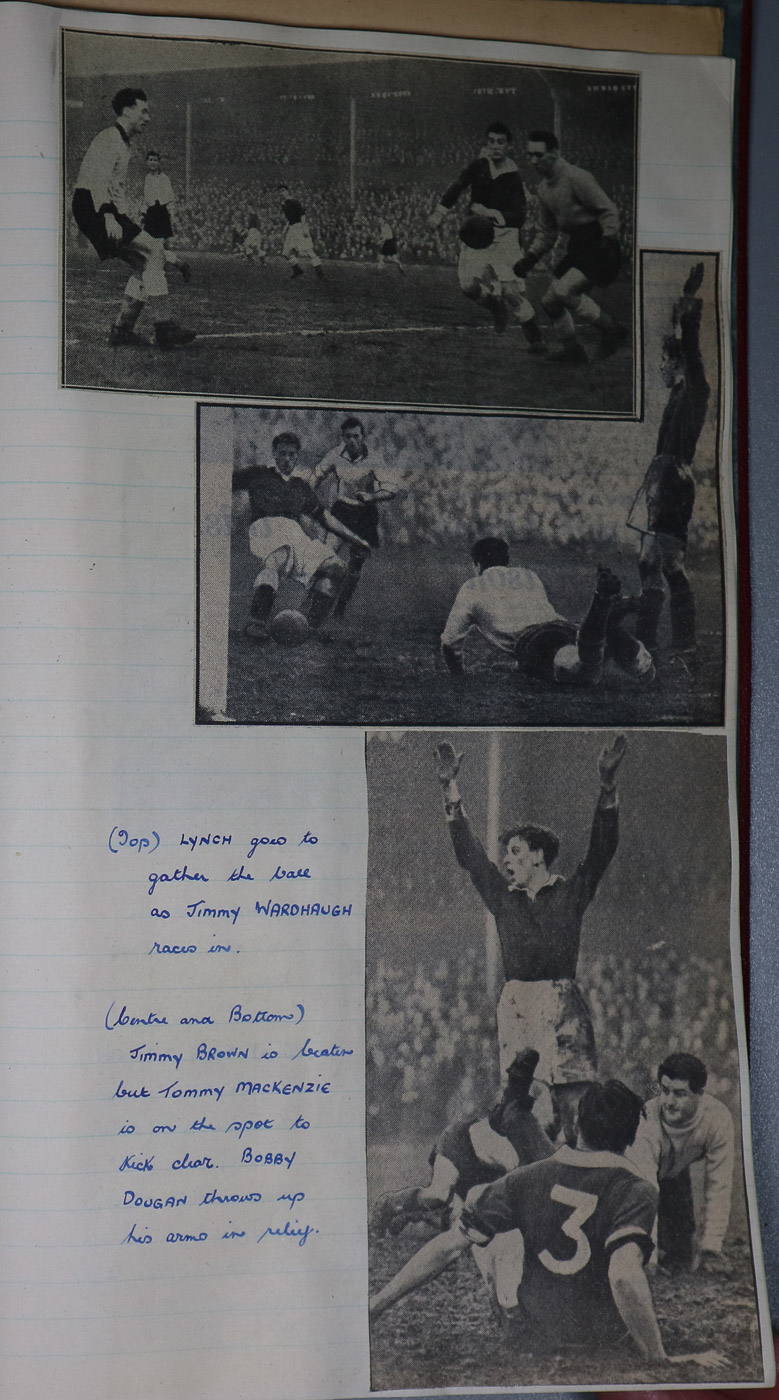 (Top) LYNCH goes to
gather the ball
as Jimmy WARDHAUGH
races in.
(Centre and Bottom)
Jimmy BROWN is beaten
but Tommy MACKENZIE
is on the spot to
kick clear. BOBBY
DOUGAN throws up
his arms in relief.
3